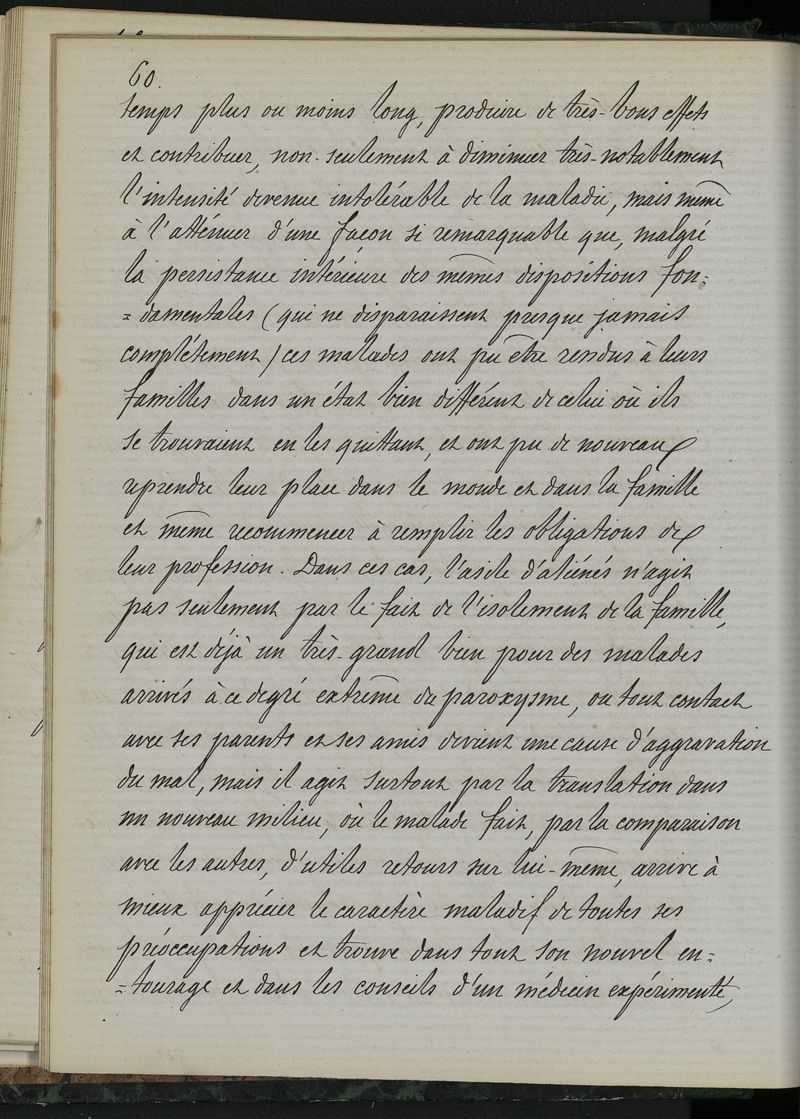 60.
temps plus ou moins long, produire de très-bons effets
et contribuer, non-seulement à diminuer très-notablement
l'intensité devenue intolérable de la maladie, mais même
à l'atténuer d'une façon si remarquable que, malgré
la persistance intérieure des mêmes dispositions fon=
=damentales (qui ne disparaissent presque jamais
complétement) ces malades ont pu être rendus à leurs
familles dans un état bien différent de celui où ils
se trouvaient en les quittant, et ont pu de nouveau
reprendre leur place dans le monde et dans la famille
et même recommencer à remplir les obligations de
leur profession. Dans ces cas, l'asile d'aliénés n'agit
pas seulement par le fait de l'isolement de la famille,
qui est déjà un très-grand bien pour des malades
arrivés à ce degré extrême du paroxysme, ou tout contact
avec ses parents et ses amis devient une cause d'aggravation
du mal, mais il agit surtout par la translation dans
un nouveau milieu, où le malade fait, par la comparaison
avec les autres, d'utiles retours sur lui-même, arrive à
mieux apprécier le caractère maladif de toutes ses
préoccupations et trouve dans tout son nouvel en=
=tourage et dans les conseils d'un médecin expérimenté,